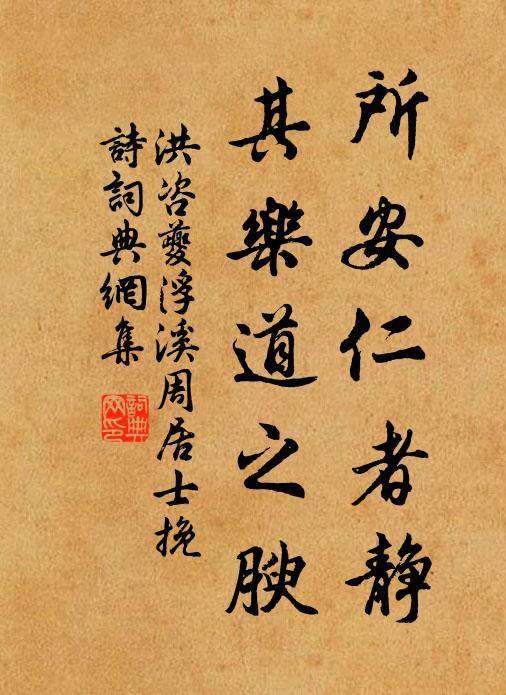 所安仁者静
其樂道之腴
洪咨夔浮溪周居士挽
詩詞典網集
詞典網印